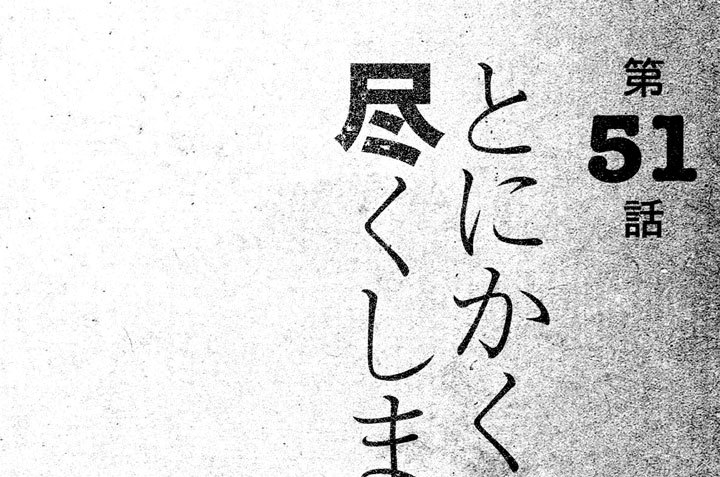 第51話
とにかく
尽くしま